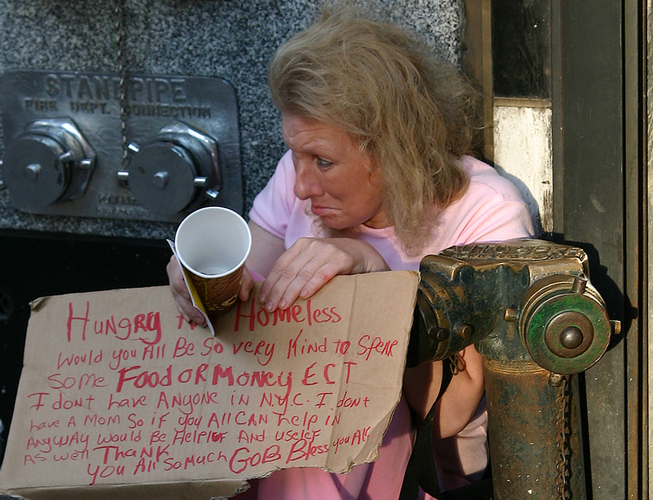 STANDPIPE
FIRE DEPT. CONNECTION
Hungry Homeless
Would you All Be So very Kind to Spear
Some Food OR Money ECT
I dont have Anyone in N.Y.C. I dont
have A Mom So if you All CAN help in
Anyway would Be Helpful And useful
As well Thank you All
you All So much God Bless